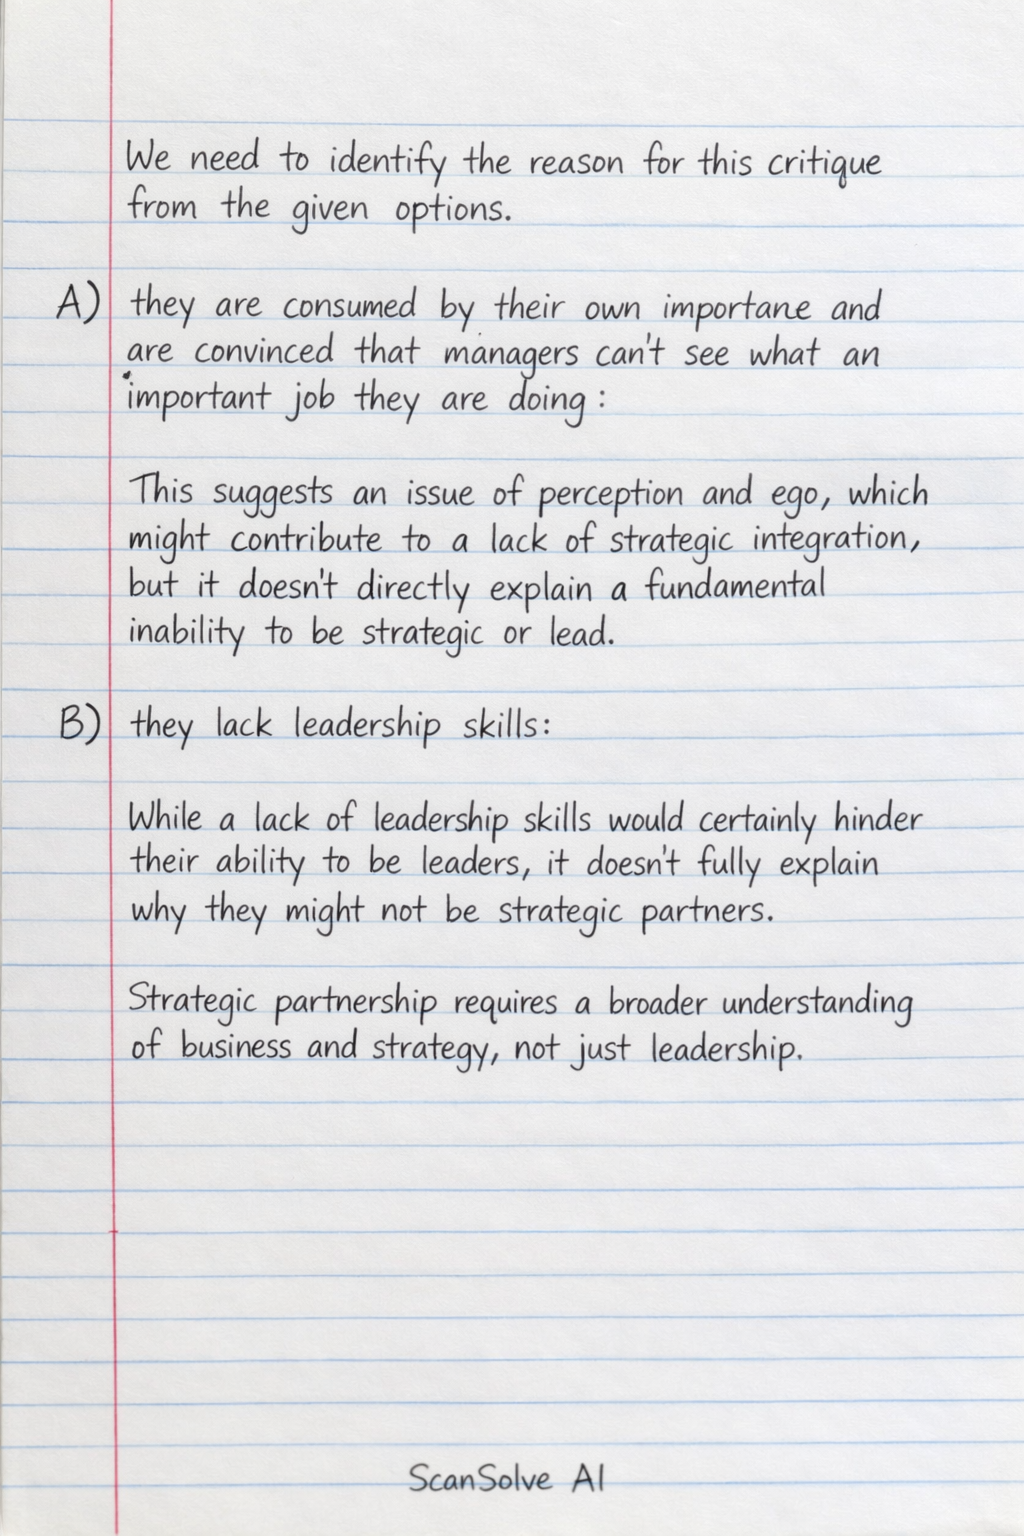 We need to identify the reason for this critique
from the given options.
A) they are consumed by their own importane and
are convinced that managers can't see what an
important job they are doing:
This suggests an issue of perception and ego, which
might contribute to a lack of strategic integration,
but it doesn't directly explain a fundamental
inability to be strategic or lead.
B) they lack leadership skills:
While a lack of leadership skills would certainly hinder
their ability to be leaders, it doesn't fully explain
why they might not be strategic partners.
Strategic partnership requires a broader understanding
of business and strategy, not just leadership.
ScanSolve AI